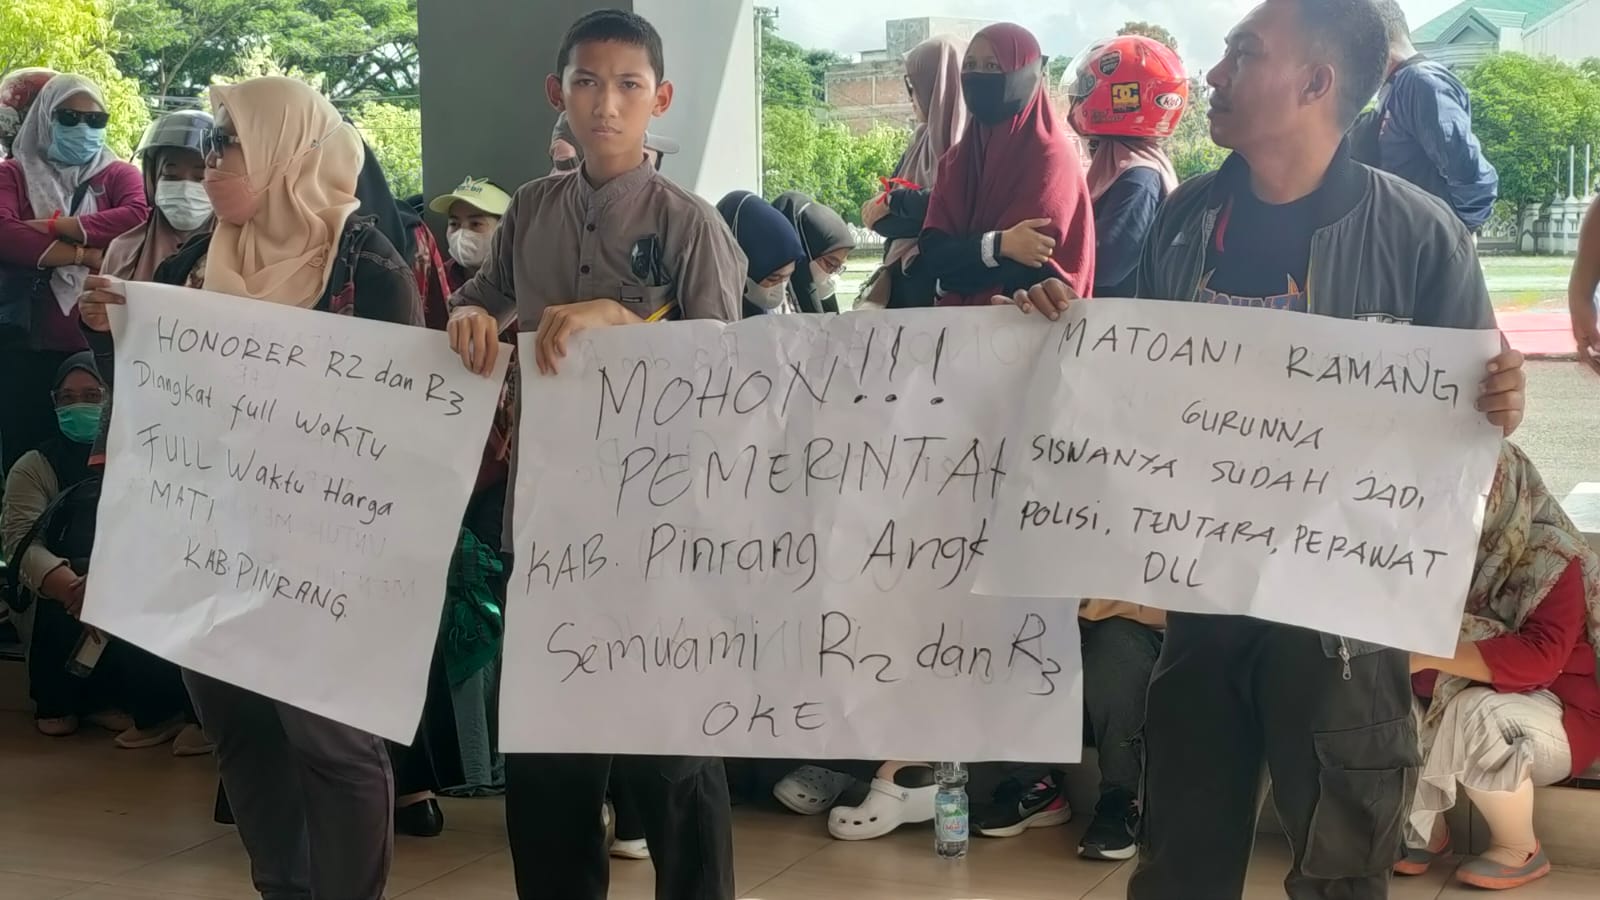 HONORER R2 dan R3
Diangkat full WaKTu
FULL Waktu Harga
MATI
KAB. PINRANG.
MOHON!!!
PEMERINTAH
KAB. Pinrang Angk
Semuami R2 dan R3
OKE
MATOANI RAMANG
GURUNNA
SISWANYA SUDAH JADI
POLISI, TENTARA, PERAWAT
DLL